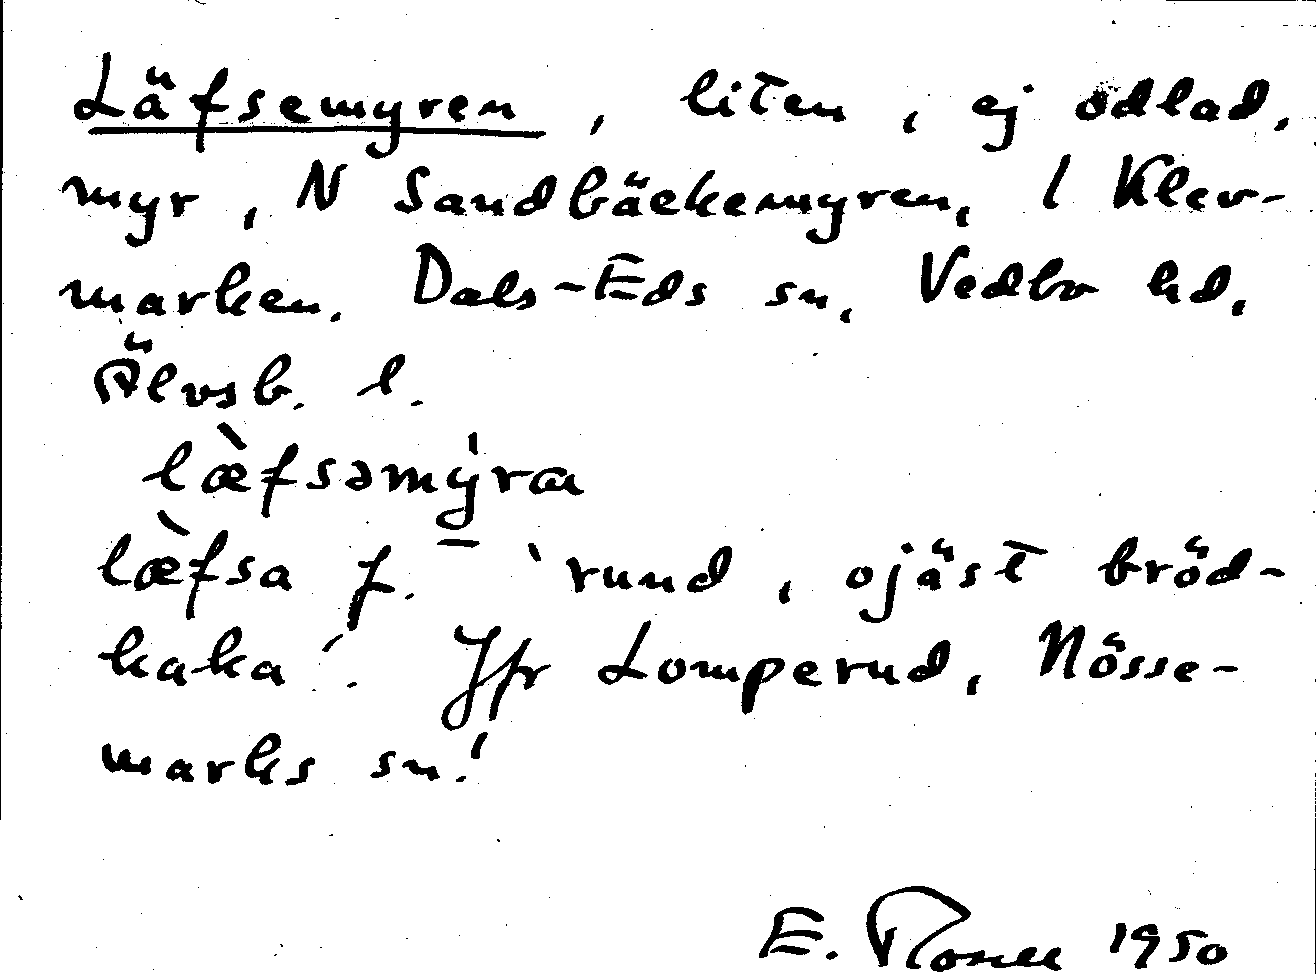 Läfsemyren, liten, ej odlad,
myr, N Sandbäckemyren, I Klev-
marken. Dals-Eds sn, Vedbo hd,
Älvsb. l.
læ̀fsəmy̩ra
læ̀fsa f. 'rund, ojäst bröd-
kaka'. Jfr Lomperud, Nösse-
marks sn!
E. 1950